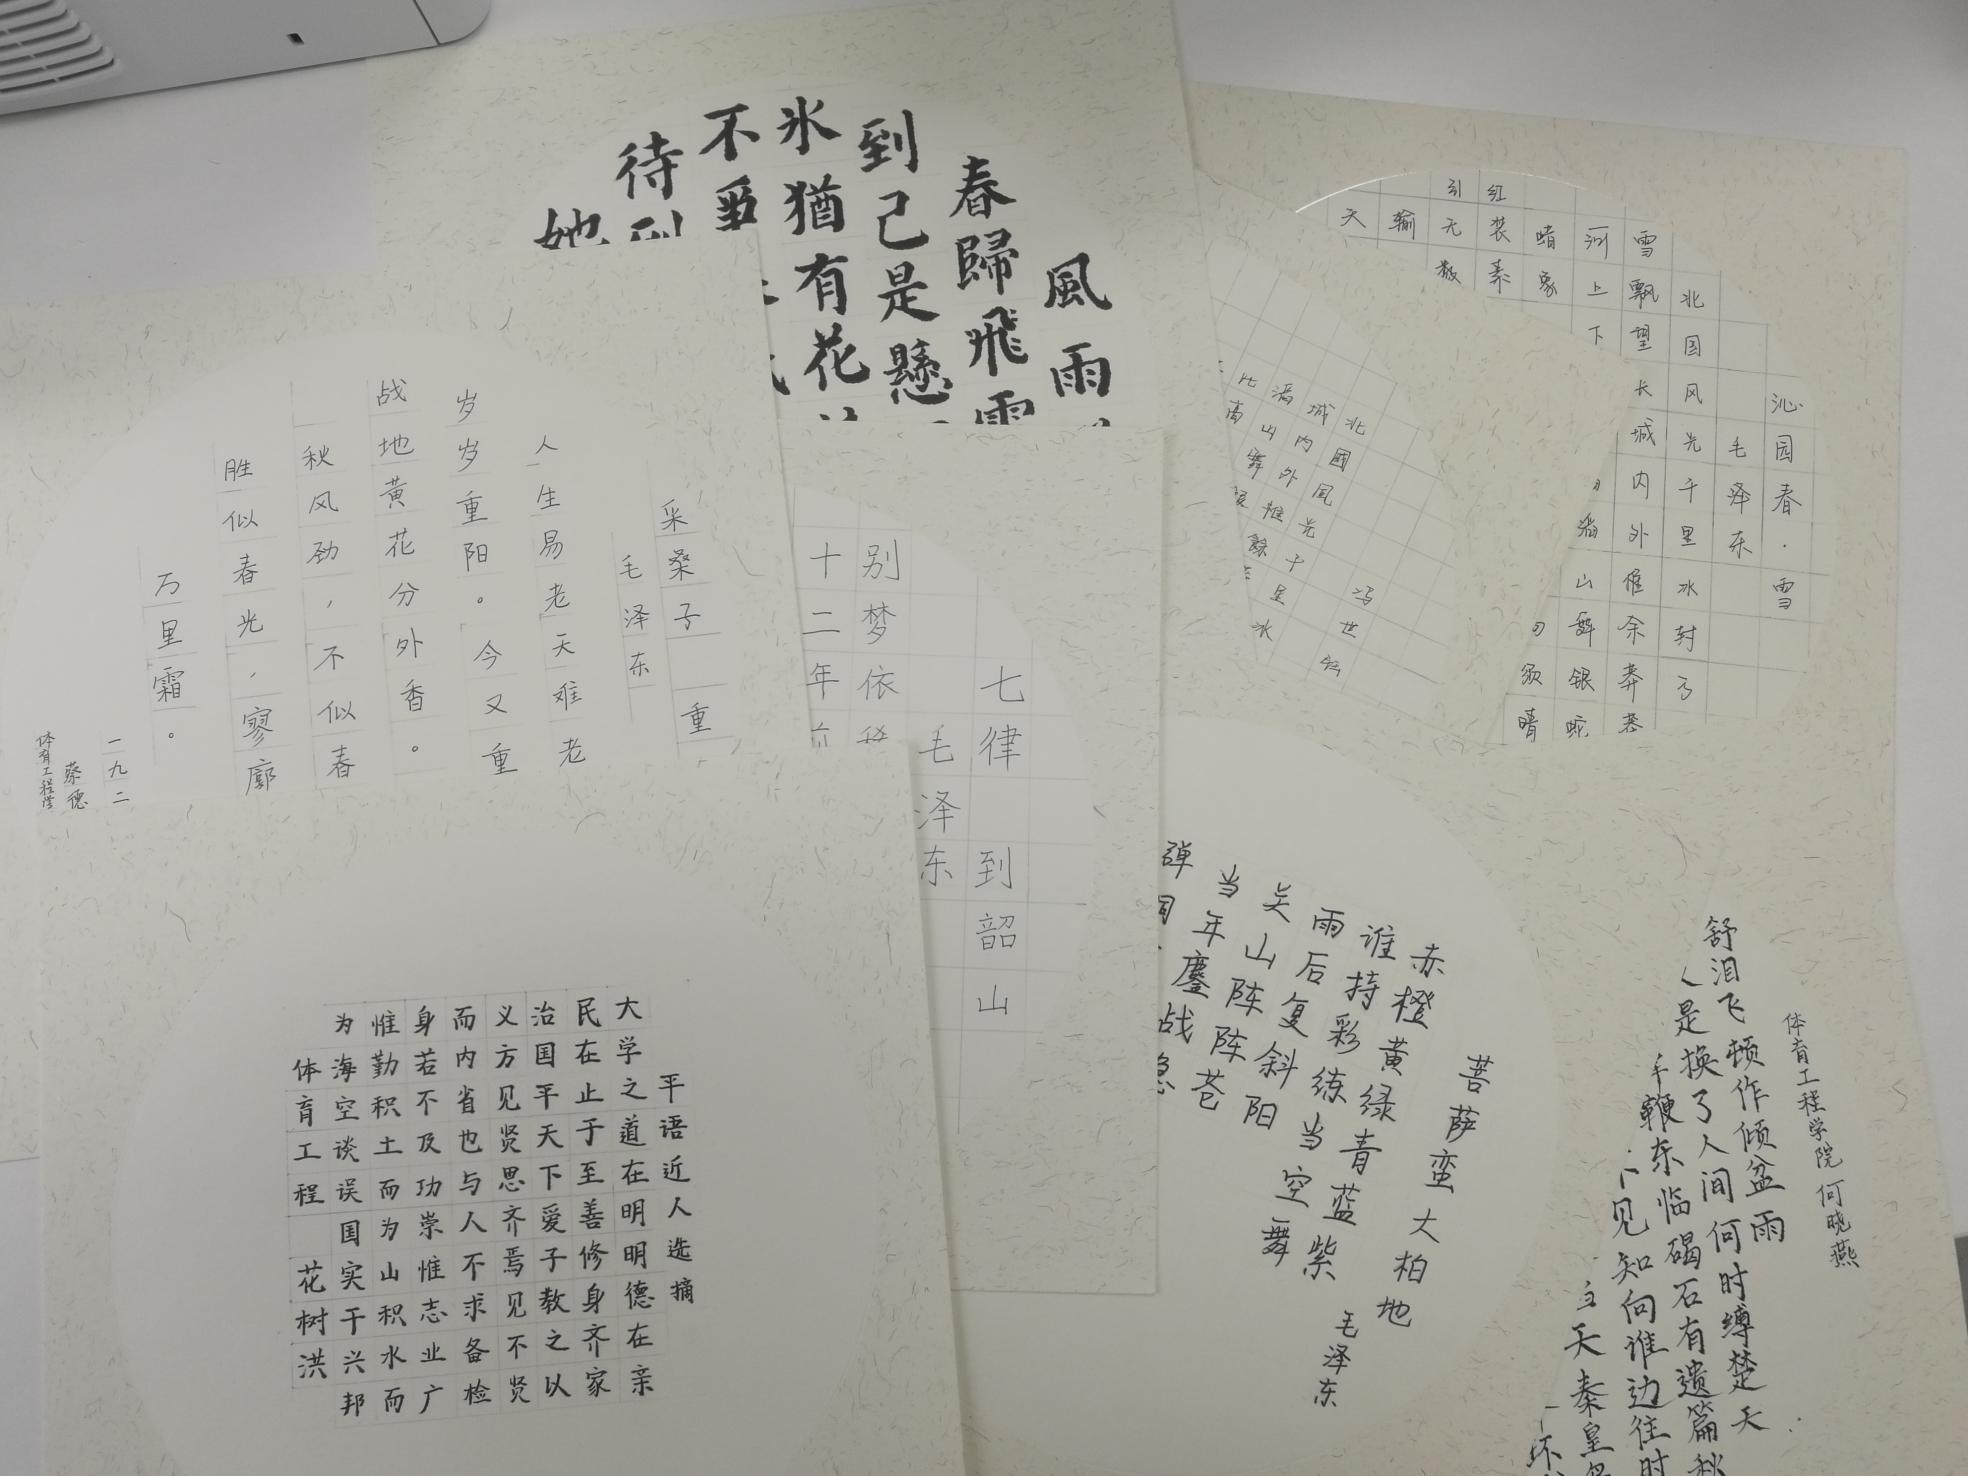 風雨
春歸飛
到己是懸
冰猶有花
不爭
待到
她
沁园春·雪
毛泽东
北国风光千里冰封万
雪飘望长城内外惟余莽莽
河上下
滔山舞银蛇
晴象
须晴
红装素
引无数
输
天
北國風光千里冰
城内外惟餘
滔山舞
冯世
采桑子 重
毛泽东
人生易老天难老
岁岁重阳。今又重
战地黄花分外香。
秋风劲,不似春
胜似春光,寥廓
万里霜。
一九二
蔡德
体育工程学
七律 到韶山
毛泽东
别梦依稀
十二年前
平语近人选摘
大学之道在明明德在亲
民在止于至善修身齐家
治国平天下爱子教之以
义方见贤思齐焉见不贤
而内省也与人不求备检
身若不及功崇惟志业广
惟勤积土而为山积水而
为海空谈误国实干兴邦
体育工程 花树洪
菩萨蛮大柏地
毛泽东
赤橙黄绿青蓝紫
谁持彩练当空舞
雨后复斜阳
关山阵阵苍
当年鏖战急
弹洞
体育工程学院 何晓燕
舒泪飞顿作倾盆雨
是换了人间何时缚楚天
鞭东临碣石有遗篇秋
见知向谁边往时
天秦皇